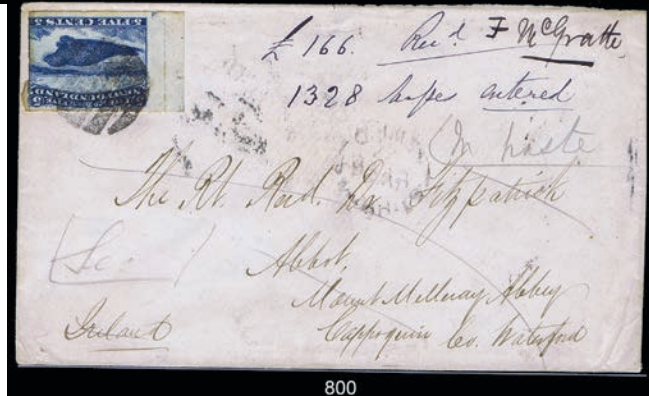 FIVE CENTS
NEWFOUNDLAND
£ 166. Recd. F McGrath
1328 entered
In haste
The Rt. Revd. Dr. Fitzpatrick
Abbot,
Mount Melleray Abbey
Ireland Cappoquin Co. Waterford
800